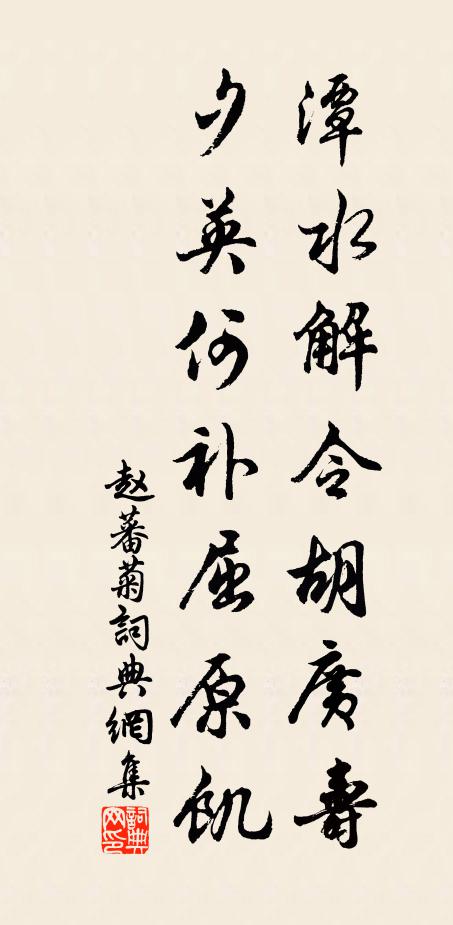 潭水解令胡廣壽
夕英何补屈原飢
赵蕃菊詞典網集
詞典网印